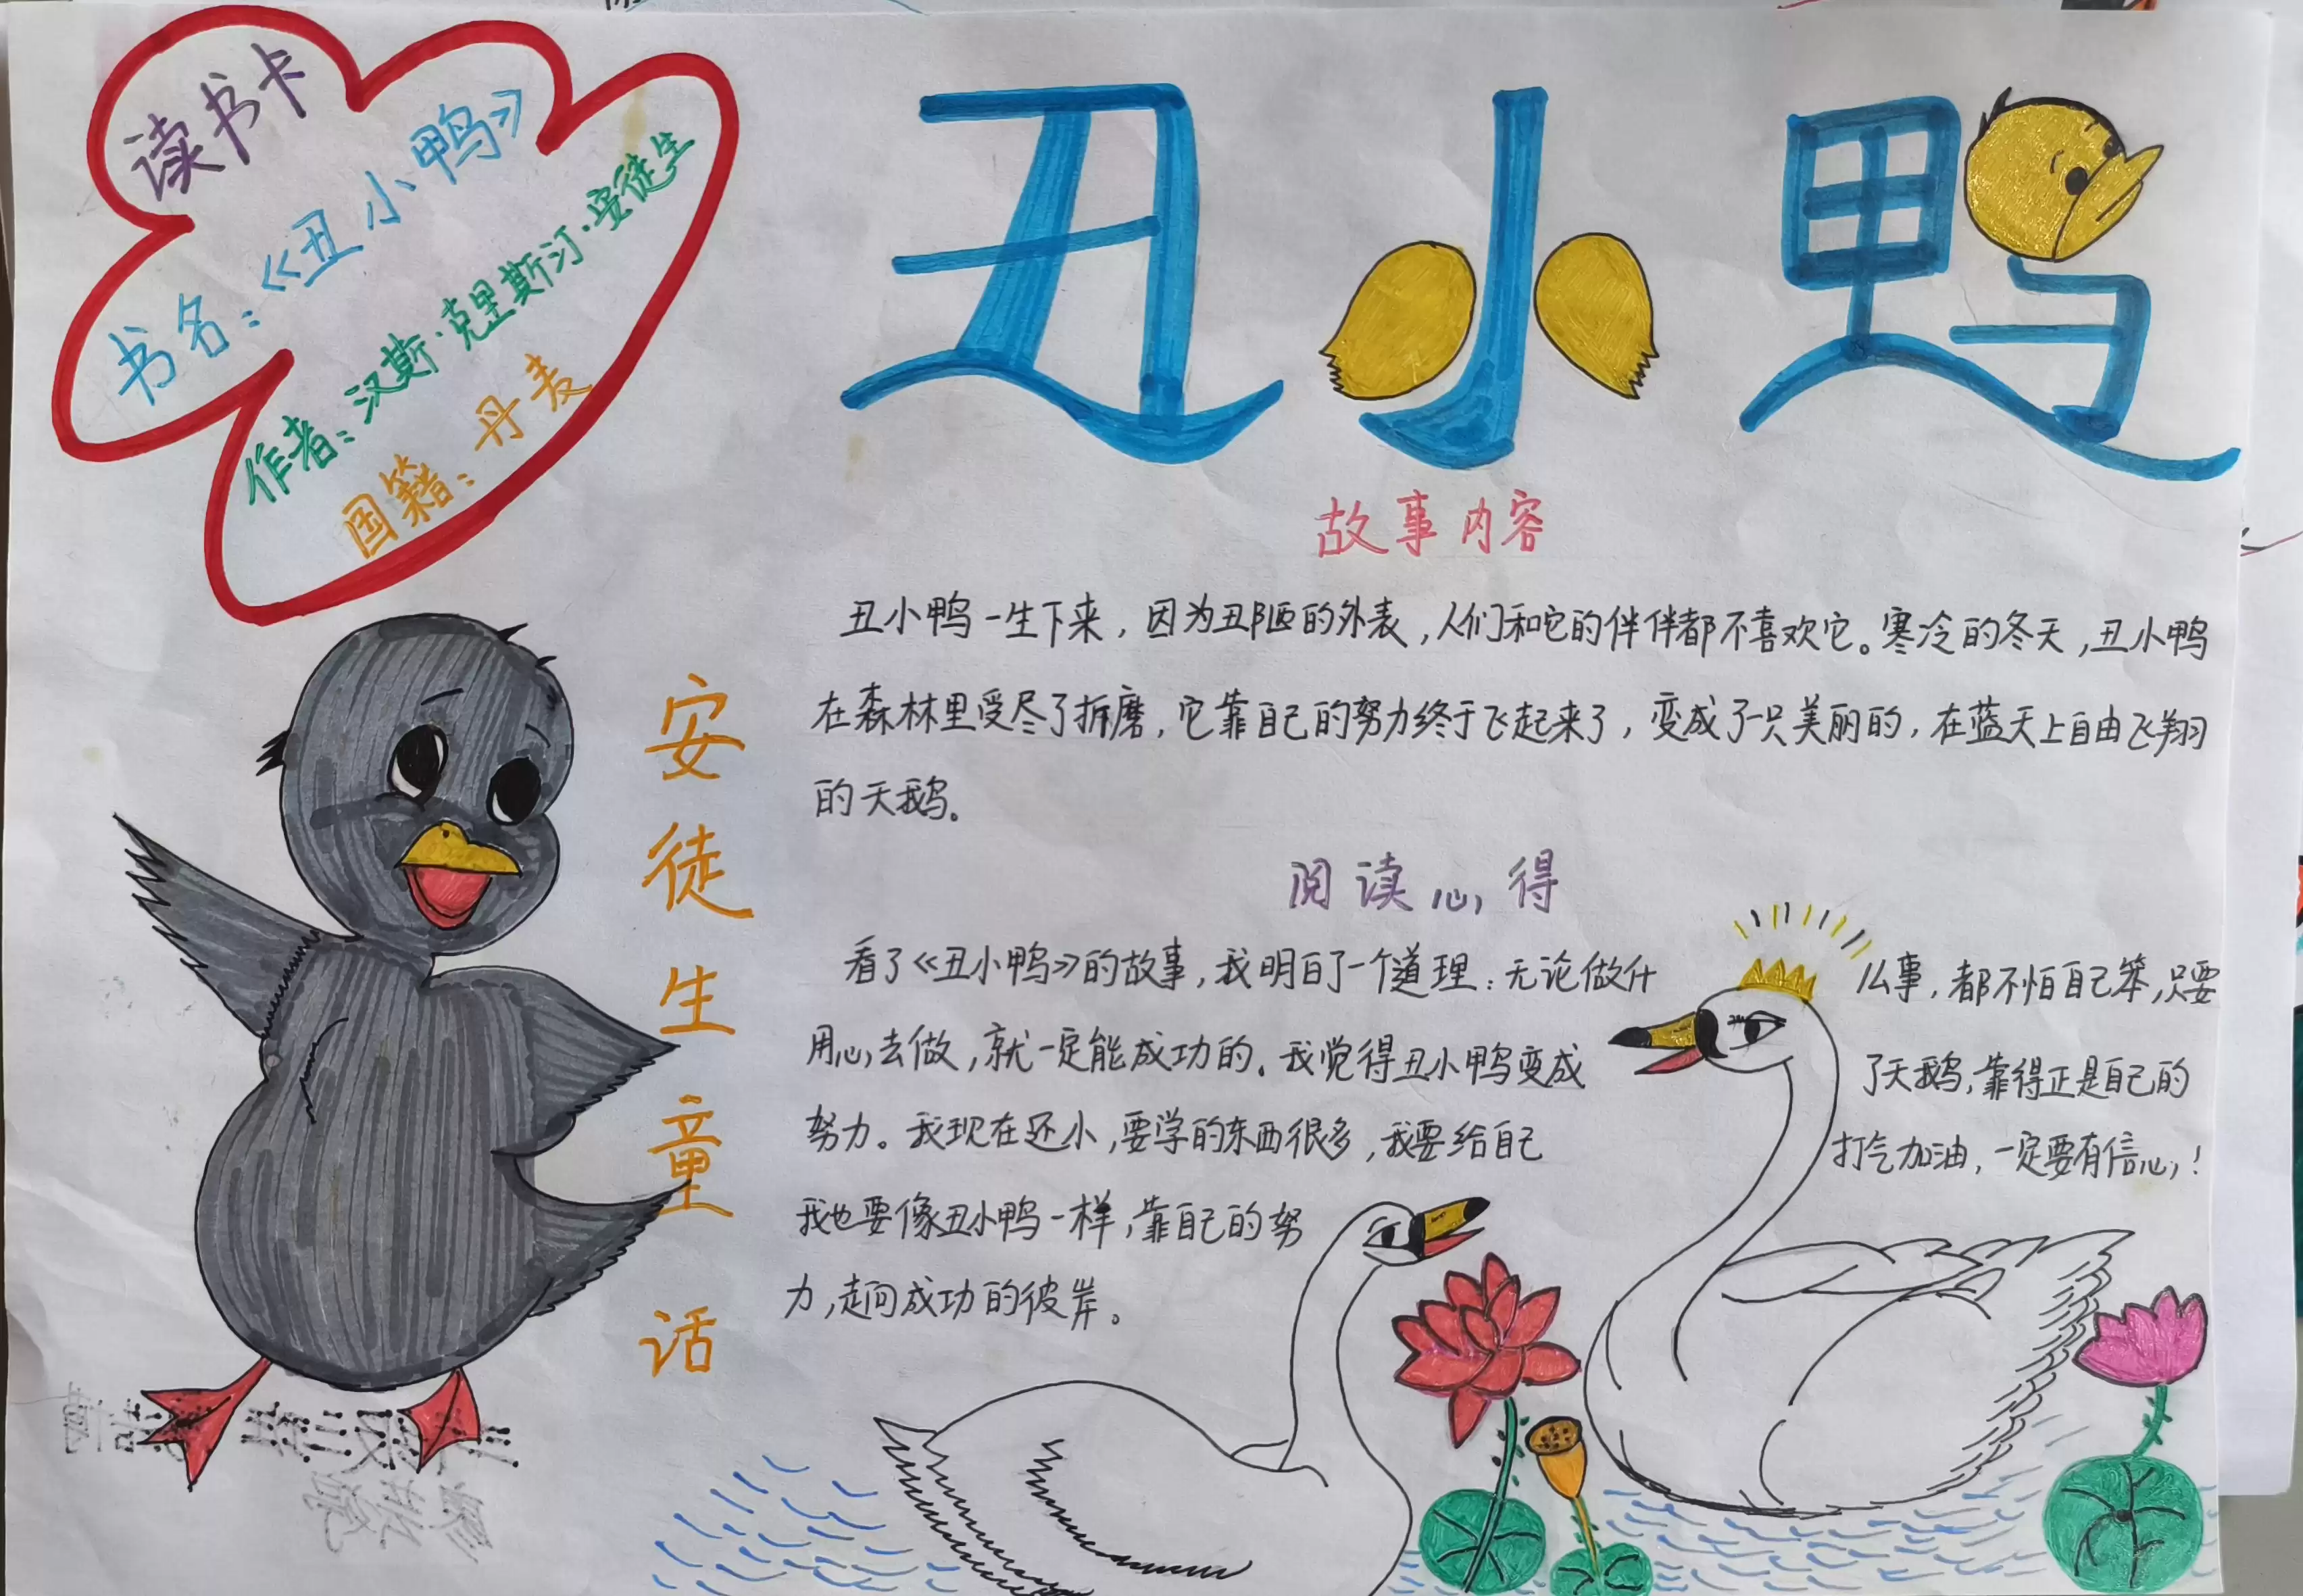 读书卡
书名:《丑小鸭》
作者:汉斯·克里斯汀·安徒生
国籍:丹麦
丑小鸭
故事内容
丑小鸭一生下来,因为丑陋的外表,人们和它的伴伴都不喜欢它。寒冷的冬天,丑小鸭
在森林里受尽了折磨,它靠自己的努力终于飞起来了,变成了一只美丽的,在蓝天上自由飞翔
的天鹅。
安徒生童话
阅读心得
看了《丑小鸭》的故事,我明白了一个道理:无论做什么事,都不怕自己笨,只要
用心去做,就一定能成功的。我觉得丑小鸭变成了天鹅,靠得正是自己的
努力。我现在还小,要学的东西很多,我要给自己打气加油,一定要有信心!
我也要像丑小鸭一样,靠自己的努
力,走向成功的彼岸。